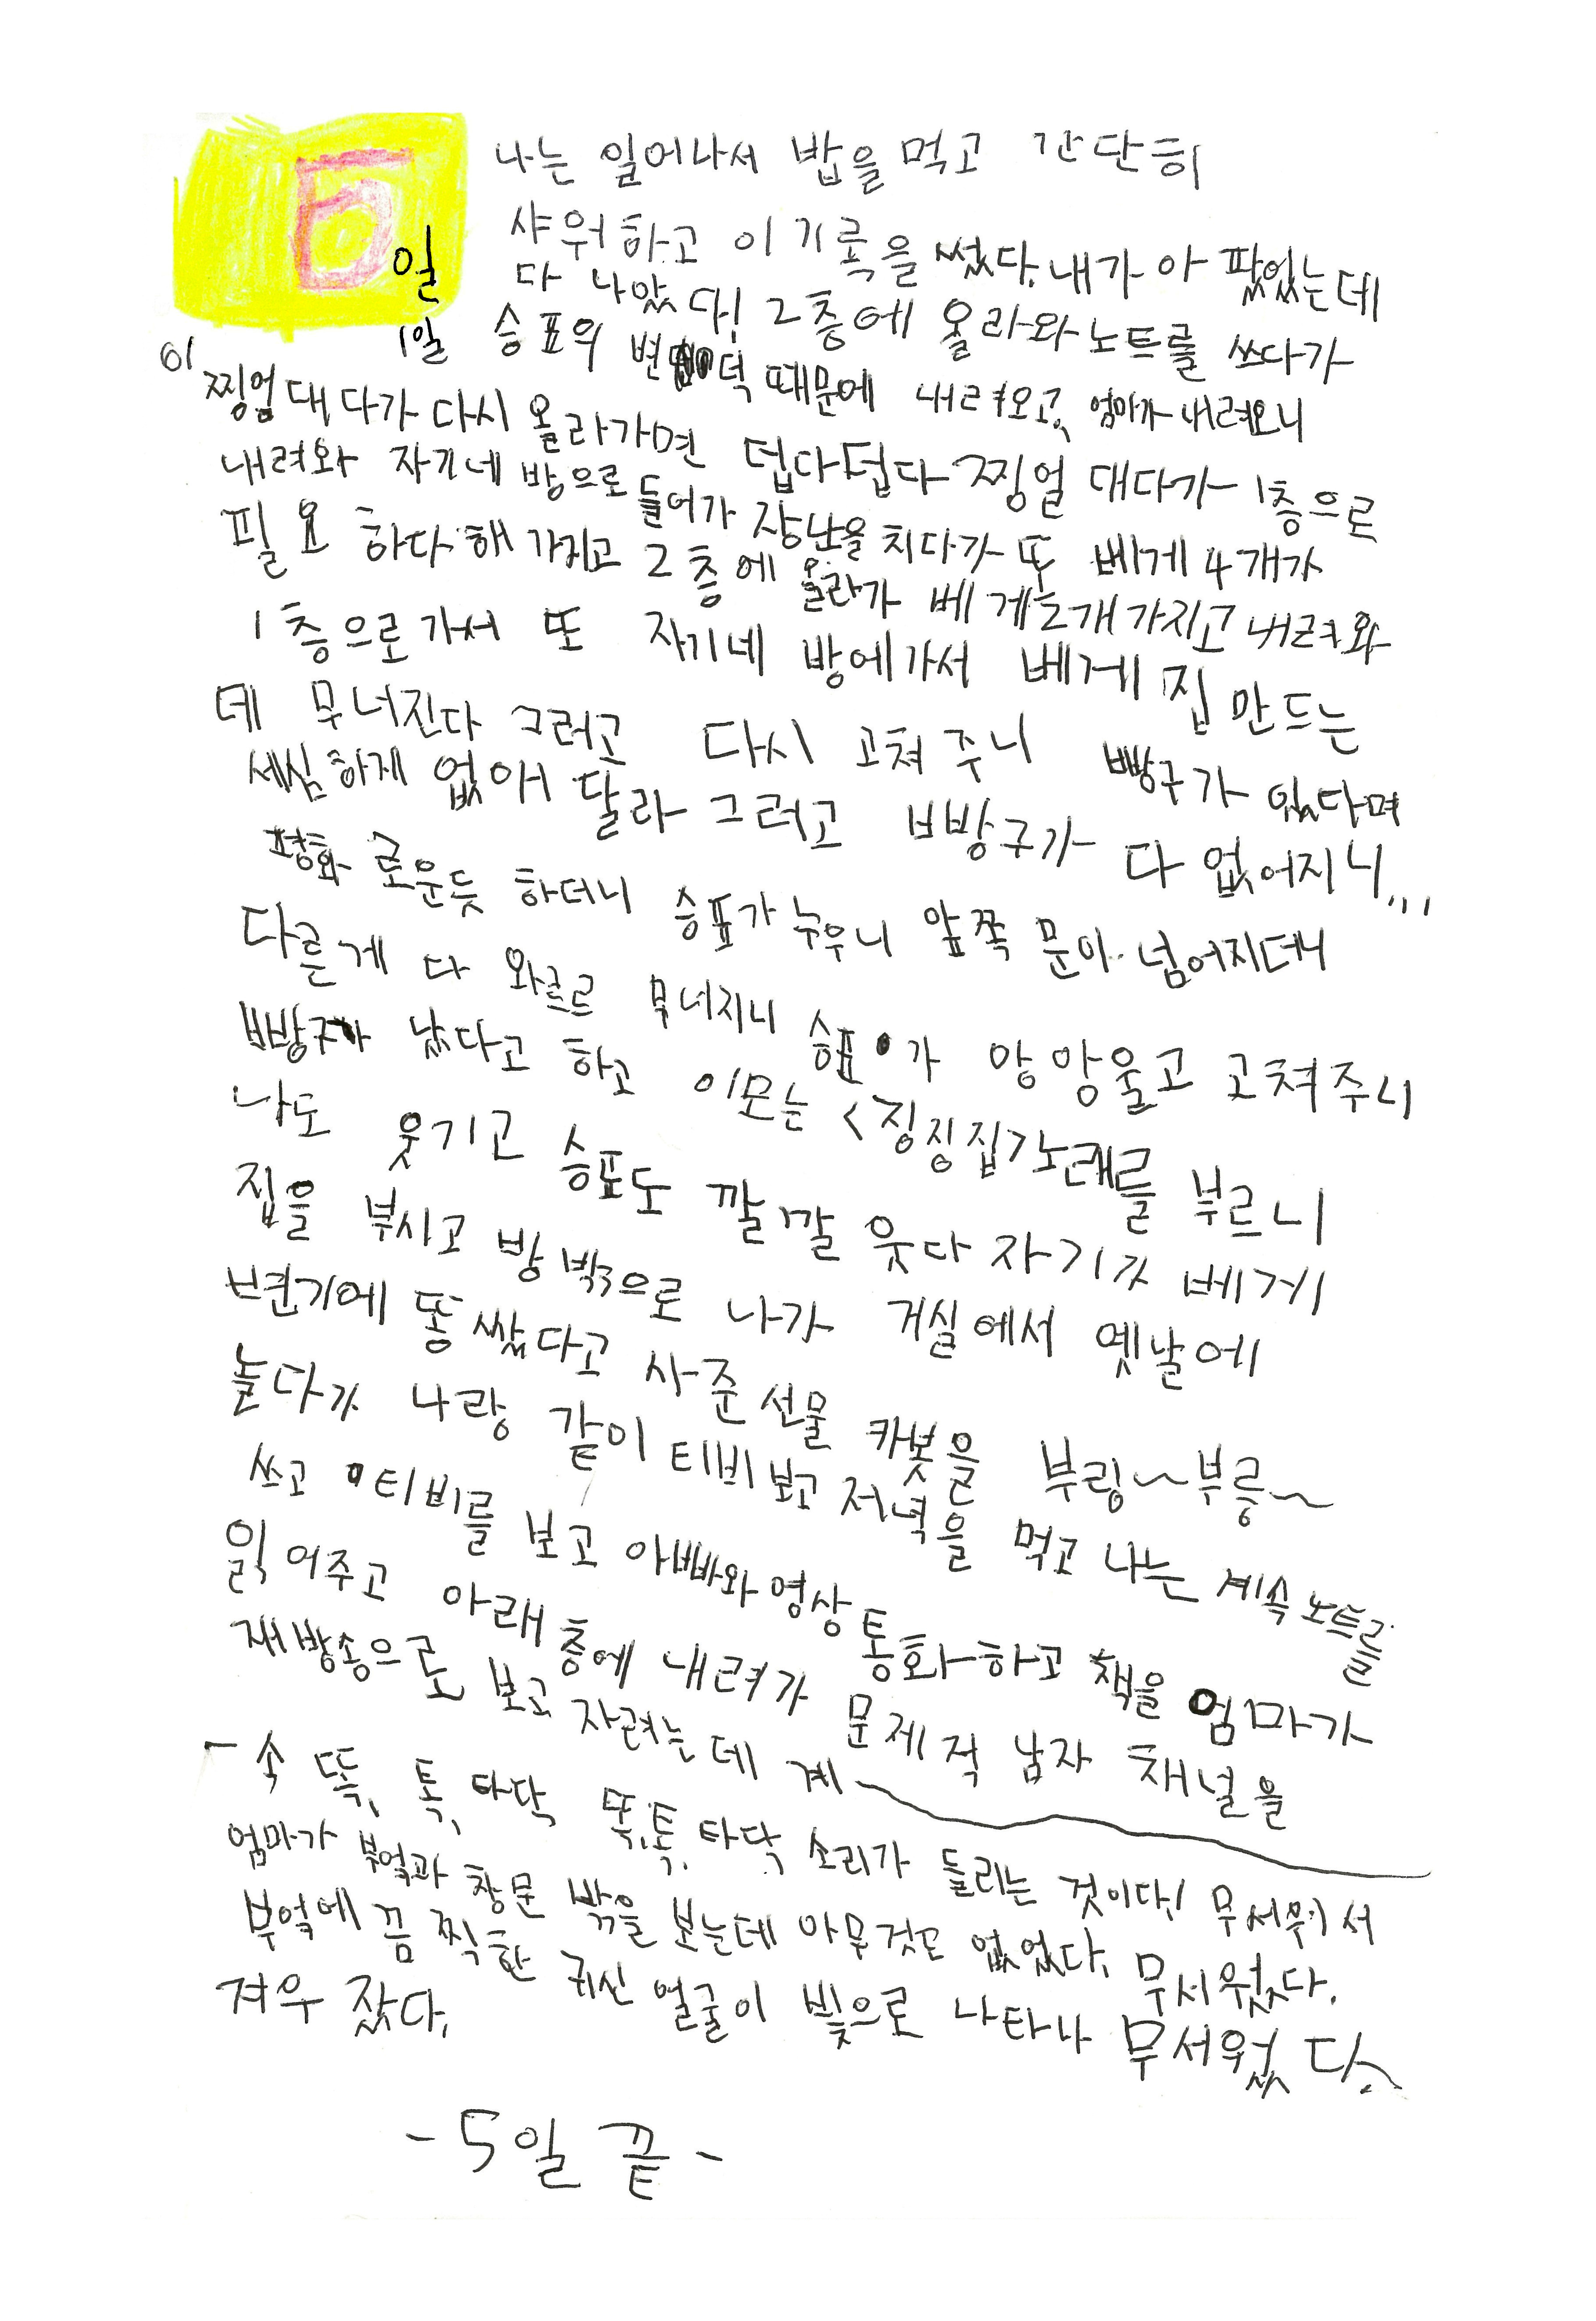 5일
나는 일어나서 밥을 먹고 간단히
샤워하고 이 기록을 썼다. 내가 아팠었는데
다 나았다! 2층에 올라와 노트를 쓰다가
1일 승표의 변덕 때문에 내려오고, 엄마가 내려오니
이 찡얼대다가 다시 올라가면 덥다덥다 찡얼 대다가 1층으로
내려와 자기네 방으로 들어가 장난을 치다가 또 베게 4개가
필요 하다 해 가지고 2층에 올라가 베게 2개 가지고 내려와
1층으로가서 또 자기네 방에가서 베게 집 만드는
데 무너진다 그러고 다시 고쳐주니 빵구가 있다며
세심하게 없애 달라 그러고 빵구가 다 없어지니...
평화 로운듯 하더니 승표가 누우니 앞쪽 문이 넘어지더니
다른게 다 와르르 무너지니 승표가 앙앙울고 고쳐주니
빵구가 났다고 하고 이모는 <징징집> 노래를 부르니
나도 웃기고 승표도 깔깔 웃다 자기가 베게
집을 부시고 방 밖으로 나가 거실에서 옛날에
변기에 똥 쌌다고 사준 선물 카봇을 부링~부릉~
놀다가 나랑 같이 티비 보고 저녁을 먹고 나는 계속 노트를
쓰고 티비를 보고 아빠와 영상 통화하고 책을 엄마가
읽어주고 아래층에 내려가 문제적 남자 채널을
재방송으로 보고 자려는데 계
속 똑, 톡, 타닥 똑, 톡, 타닥 소리가 들리는 것이다! 무서워서
엄마가 부엌과 창문 밖을 보는데 아무것도 없었다. 무서웠다.
부엌에 끔찍한 귀신 얼굴이 빛으로 나타나 무서웠다.
겨우 잤다.
-5일 끝-